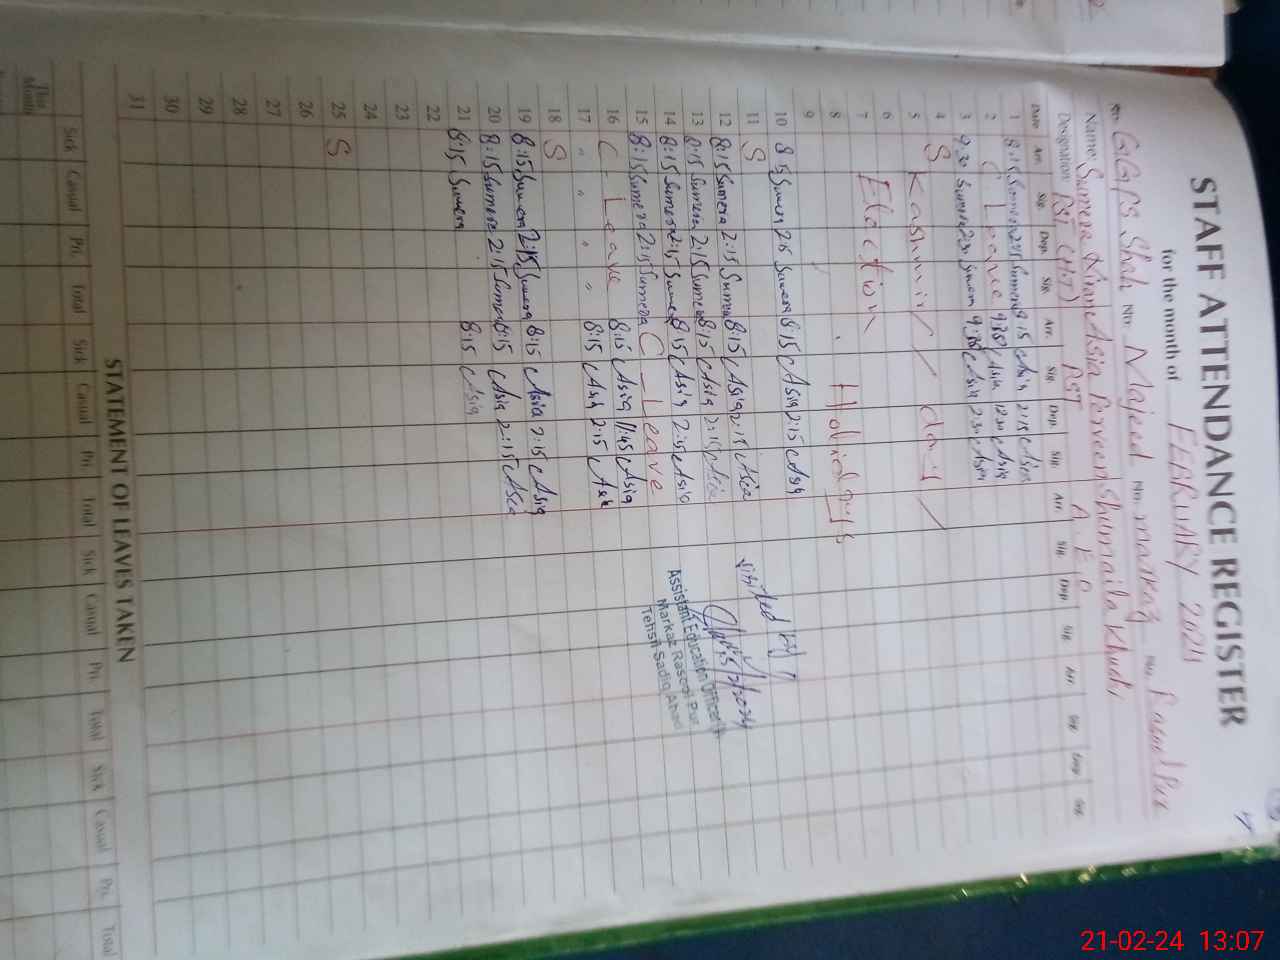 STAFF ATTENDANCE REGISTER
for the month of FEBRUARY 2024
GGPS Shah No. Majeed No. markaz No. Rasool Pur
Name: Sumera Asia Perveen Shumaila
Designation PST PST A E O
Date Arr. Sig. Dep. Sig. Arr. Sig. Dep. Sig. Arr. Sig. Dep. Sig. Arr. Sig. Dep. Sig.
1 8:15 Sumera 2:15 Sumera 8:15 Asia 2:15 Asia
2 C Leave Asia 12:30 Asia
3 9:30 Sumera 2:30 Sumera 9:30 Asia 2:30 Asia
4 S
5 Kashmir / day /
6
7 Election
8 Holidays
9
10 8:15 Sumera 2:15 Sumera 8:15 Asia 2:15 Asia
11 S
12 8:15 Sumera 2:15 Sumera 8:15 Asia 2:15 Asia
13 8:15 Sumera 2:15 Sumera 8:15 Asia 2:15 Asia
14 8:15 Sumera 2:15 Sumera 8:15 Asia 2:15 Asia
15 8:15 Sumera 2:15 Sumera C - Leave
16 C - Leave 8:15 Asia 11:45 Asia
17 " " " " 8:15 Asia 2:15 Asia
18 S
19 8:15 Sumera 2:15 Sumera 8:15 Asia 2:15 Asia
20 8:15 Sumera 2:15 Sumera 8:15 Asia 2:15 Asia
21 8:15 Sumera 8:15 Asia
22
23
24
25 S
26
27
28
29
30
31
visited
Assistant Education Officer
Markaz Rasool Pur
Tehsil Sadiq Abad
STATEMENT OF LEAVES TAKEN STATEMENT OF LEAVES TAKEN
Sick Casual Pri. Total Sick Casual Pri. Total Sick Casual Pri. Total Sick Casual Pri. Total
This Month
21-02-24 13:07